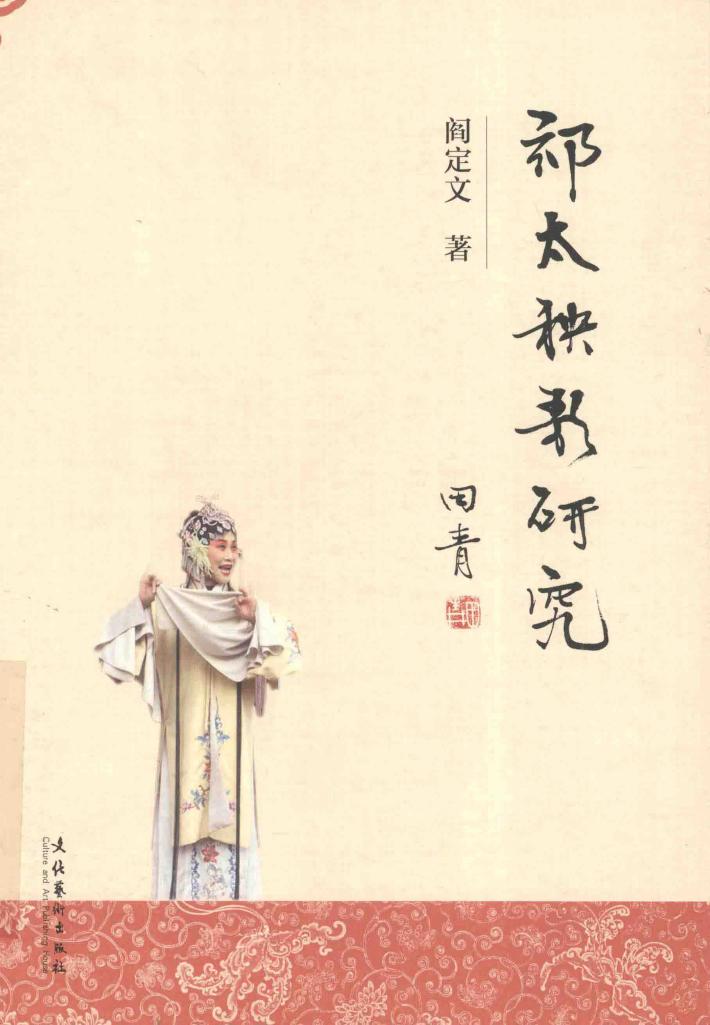 祁太秧歌研究
阎定文 著
田青
文化藝術出版社
Culture and Art Publishing House